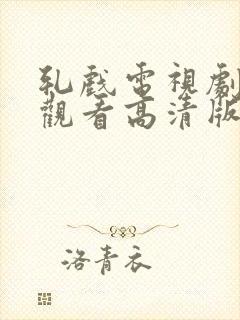 乳戲電視劇
觀看高清版
洛青衣